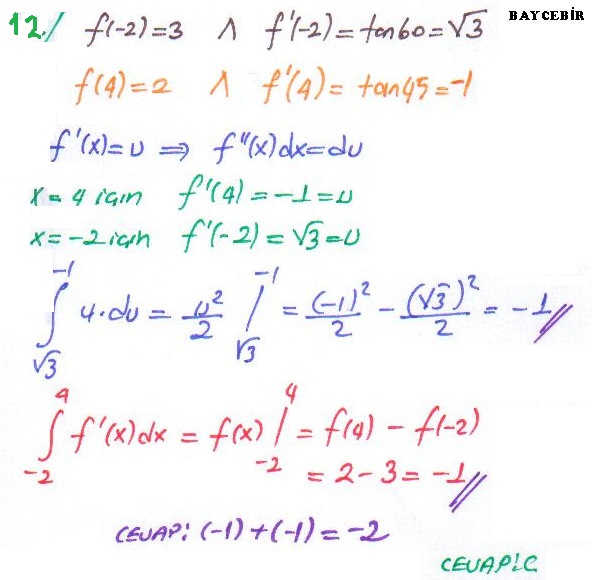 BAYCEBİR
12./ f(-2)=3 ∧ f'(-2)=tan60=√3
f(4)=2 ∧ f'(4)=tan45=-1
f'(x)=u ⇒ f''(x)dx=du
x=4 için f'(4)=-1=u
x=-2 için f'(-2)=√3=u
∫_{√3}^{-1} u·du = u²/2 |_{√3}^{-1} = (-1)²/2 - (√3)²/2 = -1//
∫_{-2}^{4} f'(x)dx = f(x) |_{-2}^{4} = f(4) - f(-2)
= 2-3 = -1//
CEVAP: (-1)+(-1)=-2
CEVAP:C